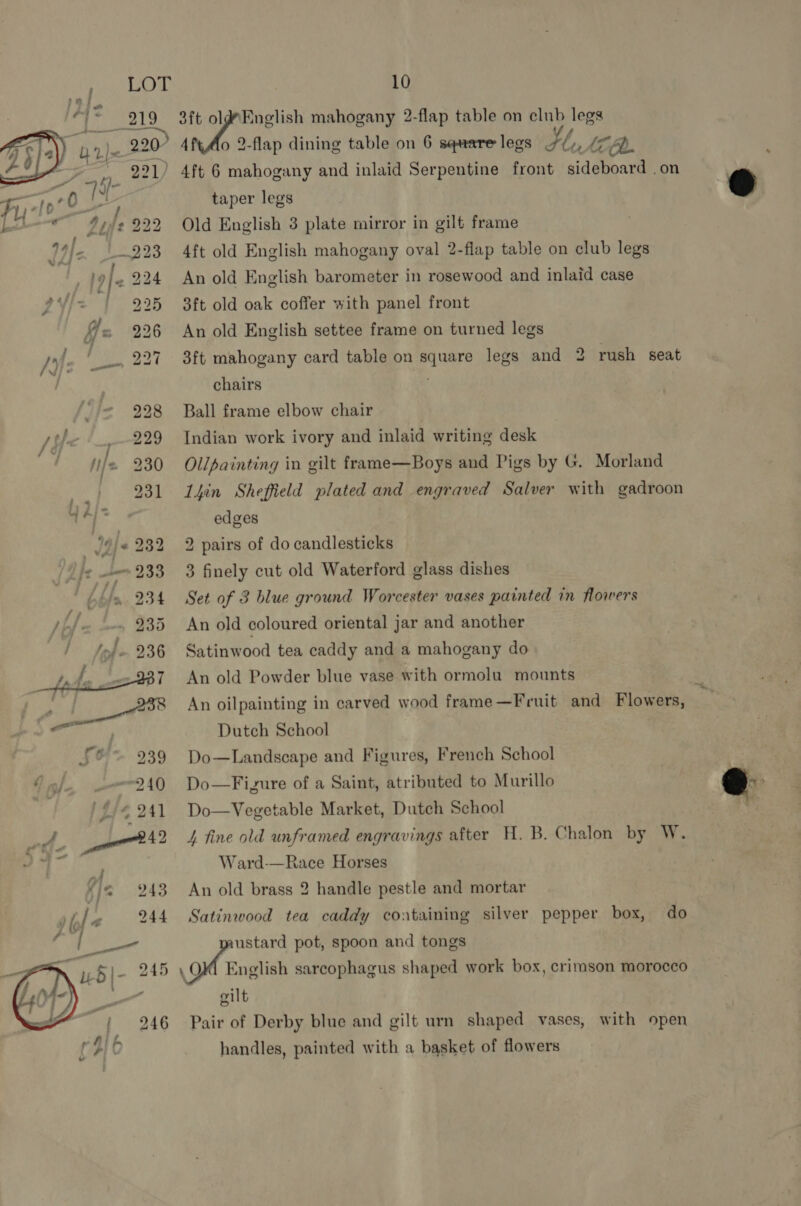 LOT 10
219 3ft old English mahogany 2-flap table on club legs
220 4ft do 2-flap dining table on 6 square legs
221 4ft 6 mahogany and inlaid Serpentine front sideboard on
taper legs
222 Old English 3 plate mirror in gilt frame
223 4ft old English mahogany oval 2-flap table on club legs
224 An old English barometer in rosewood and inlaid case
225 3ft old oak coffer with panel front
226 An old English settee frame on turned legs
227 3ft mahogany card table on square legs and 2 rush seat
chairs
228 Ball frame elbow chair
229 Indian work ivory and inlaid writing desk
230 Oilpainting in gilt frame—Boys and Pigs by G. Morland
231 14in Sheffield plated and engraved Salver with gadroon
edges
232 2 pairs of do candlesticks
233 3 finely cut old Waterford glass dishes
234 Set of 3 blue ground Worcester vases painted in flowers
235 An old coloured oriental jar and another
236 Satinwood tea caddy and a mahogany do
237 An old Powder blue vase with ormolu mounts
238 An oilpainting in carved wood frame—Fruit and Flowers,
Dutch School
239 Do—Landscape and Figures, French School
240 Do—Figure of a Saint, atributed to Murillo
241 Do—Vegetable Market, Dutch School
242 4 fine old unframed engravings after H. B. Chalon by W.
Ward—Race Horses
243 An old brass 2 handle pestle and mortar
244 Satinwood tea caddy containing silver pepper box, do
mustard pot, spoon and tongs
245 Old English sarcophagus shaped work box, crimson morocco
gilt
246 Pair of Derby blue and gilt urn shaped vases, with open
handles, painted with a basket of flowers